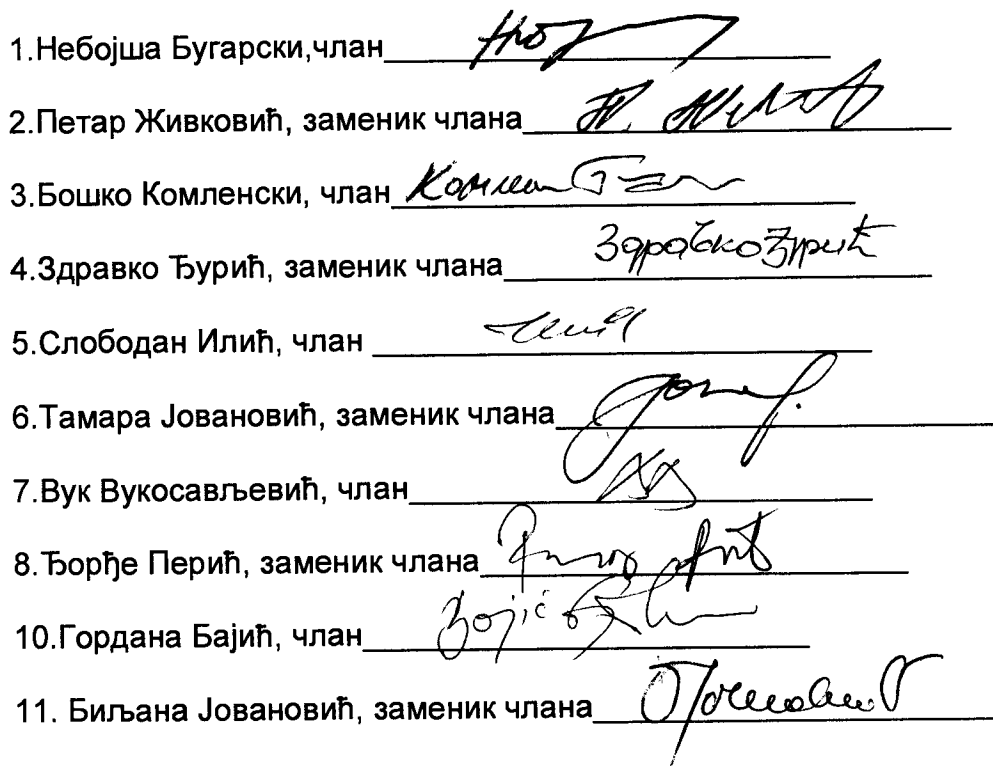 1.Небојша Бугарски,члан
2.Петар Живковић, заменик члана
3.Бошко Комленски, члан
4.Здравко Ђурић, заменик члана Здравко Ђурић
5.Слободан Илић, члан
6.Тамара Јовановић, заменик члана
7.Вук Вукосављевић, члан
8.Ђорђе Перић, заменик члана
10.Гордана Бајић, члан
11. Биљана Јовановић, заменик члана